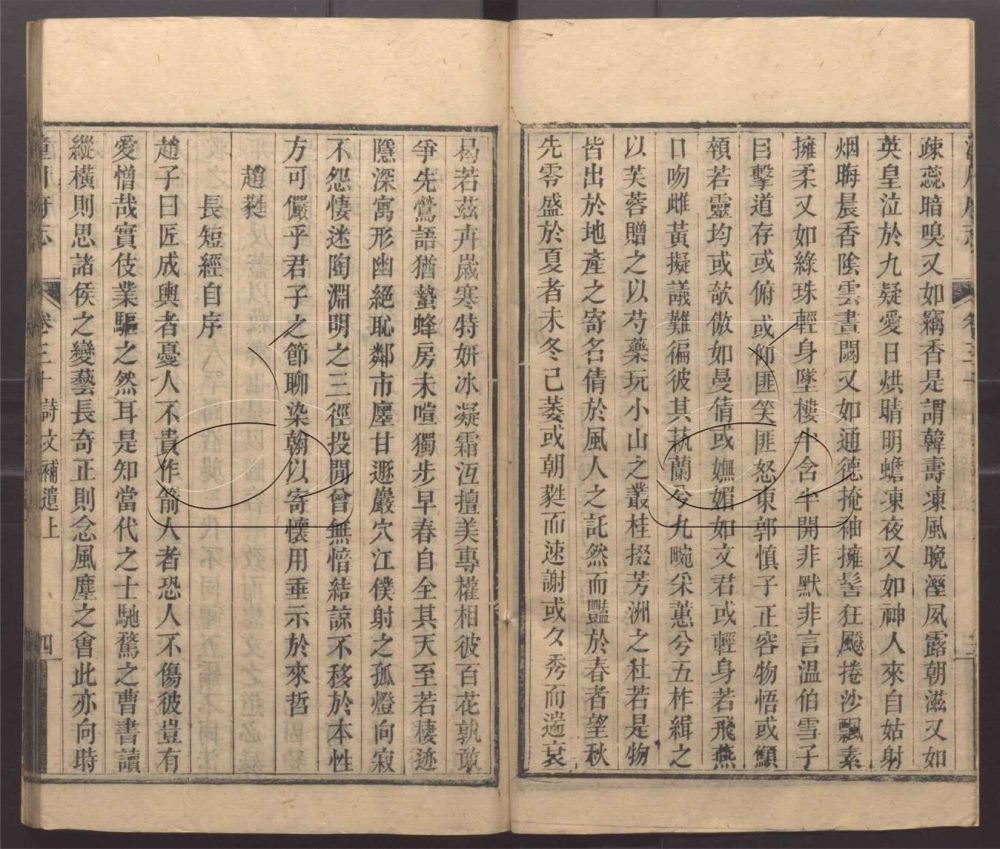 疎蕊暗嗅又如竊香是謂韓壽凍風晚溼夙露朝滋又如
英皇泣於九疑愛日烘晴明蟾凍夜又如神人來自姑射
烟晦晨香陰雲晝閟又如通德掩袖擁髻狂飈捲沙飄素
擁柔又如綠珠輕身墜樓半含半開非默非言溫伯雪子
目擊道存或俯或仰匪笑匪怒東郭慎子正容物悟或顦
頟若靈均或欹傲如曼倩或嫵媚如文君或輕身若飛燕
口吻雌黃擬議難徧彼其蓺蘭兮九畹采蕙兮五柞緝之
以芙蓉贈之以芍藥玩小山之叢桂掇芳洲之杜若是物
皆出於地產之寄名倩於風人之託然而豔於春者望秋
先零盛於夏者未冬已萎或朝蕣而速謝或夕秀而遄衰
曷若茲卉歲寒特妍冰凝霜沍擅美專權相彼百花孰敢
爭先鶯語猶蟄蜂房未喧獨步早春自全其天至若棲迹
隱深寓形幽絕恥鄰市廛甘遯巖穴江僕射之孤燈向寂
不怨悽迷陶淵明之三徑投閒曾無愔結諒不移於本性
方可儷乎君子之節聊染翰以寄懷用垂示於來哲
趙蕤
長短經自序
趙子曰匠成輿者憂人不貴作箭人者恐人不傷彼豈有
愛憎哉實伎業驅之然耳是知當代之士馳騖之曹書讀
縱橫則思諸侯之變藝長奇正則念風塵之會此亦向時
潼川府志 卷三十 詩文補遺上 四